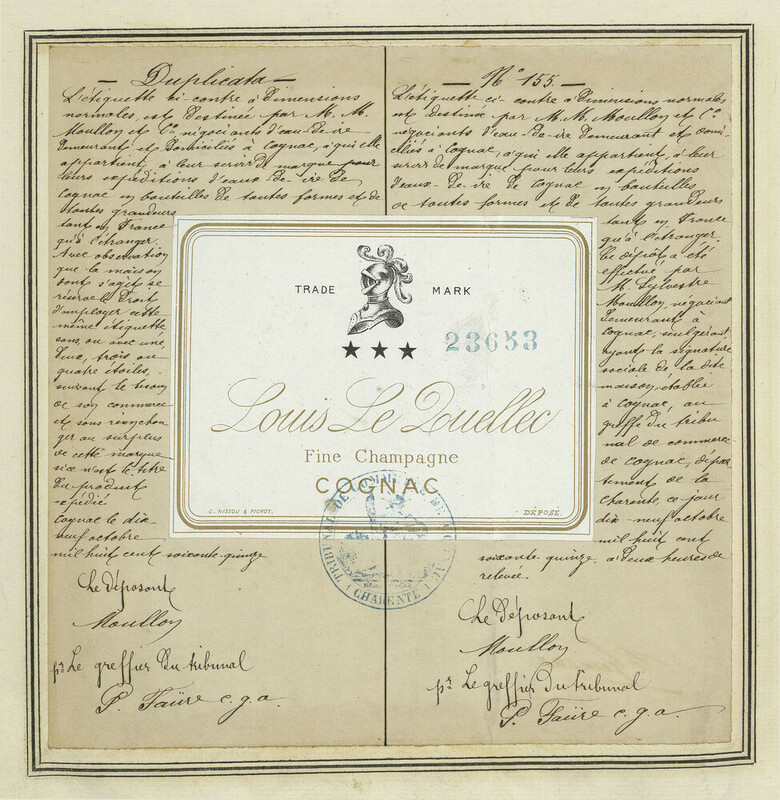 — Duplicata —
L'étiquette ci contre à Dimensions
normales, est Destinée par M. M.
Moullon et Cie négociants D'eau-De-vie
Demeurant et Domiciliés à Cognac, à qui elle
appartient, à leur servir De marque pour
leurs expéditions D'eaux-De-vie De
Cognac en bouteilles De toutes formes et de
toutes grandeurs
tant en France
qu'à l'étranger.
Avec observation
que la maison
Dont s'agit se
réserve le Droit
D'employer cette
même étiquette
sans, ou avec une,
Deux, trois ou
quatre étoiles,
suivant le besoin
De son commerce
et sans rien chan-
ger au surplus
De cette marque
si ce n'est le titre
Du produit
expédié
Cognac le dix-
neuf octobre
mil huit cent soixante quinze
Le Déposant
Moullon
pr Le greffier Du tribunal
P. Faüre c.g.a.
— No 155. —
L'étiquette ci contre à Dimensions normales
est Destinée par M. M. Moullon et Cie
négociants D'eaux-De-vie Demeurant et Domi-
ciliés à Cognac, à qui elle appartient, à leur
servir De marque pour leurs expéditions
D'eaux-De-vie De Cognac en bouteilles
De toutes formes et De toutes grandeurs
tant en France
qu'à l'étranger.
Ce dépôt a été
effectué par
M. Sylvestre
Moullon, négociant
Demeurant à
Cognac, seul gérant
ayant la signature
sociale de la dite
maison, établie
à Cognac, au
greffe Du tribu
nal de commerce
De Cognac, dépar-
tement De la
Charente, ce jour
dix-neuf octobre
mil huit cent
soixante quinze, à Deux heures De
relevée.
Le Déposant
Moullon
pr Le greffier Du tribunal
P. Faüre c.g.a.
TRADE MARK
★★★ 23653
Louis Le Quellec
Fine Champagne
COGNAC
G. NISSOU & PICHOT. DÉPOSÉ.
TRIBUNAL DE COMMERCE DE COGNAC
(CHARENTE)